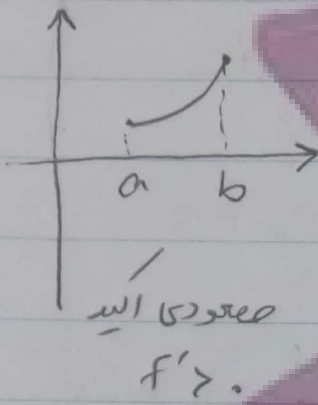 a b
صعودی اکید
f' > 0